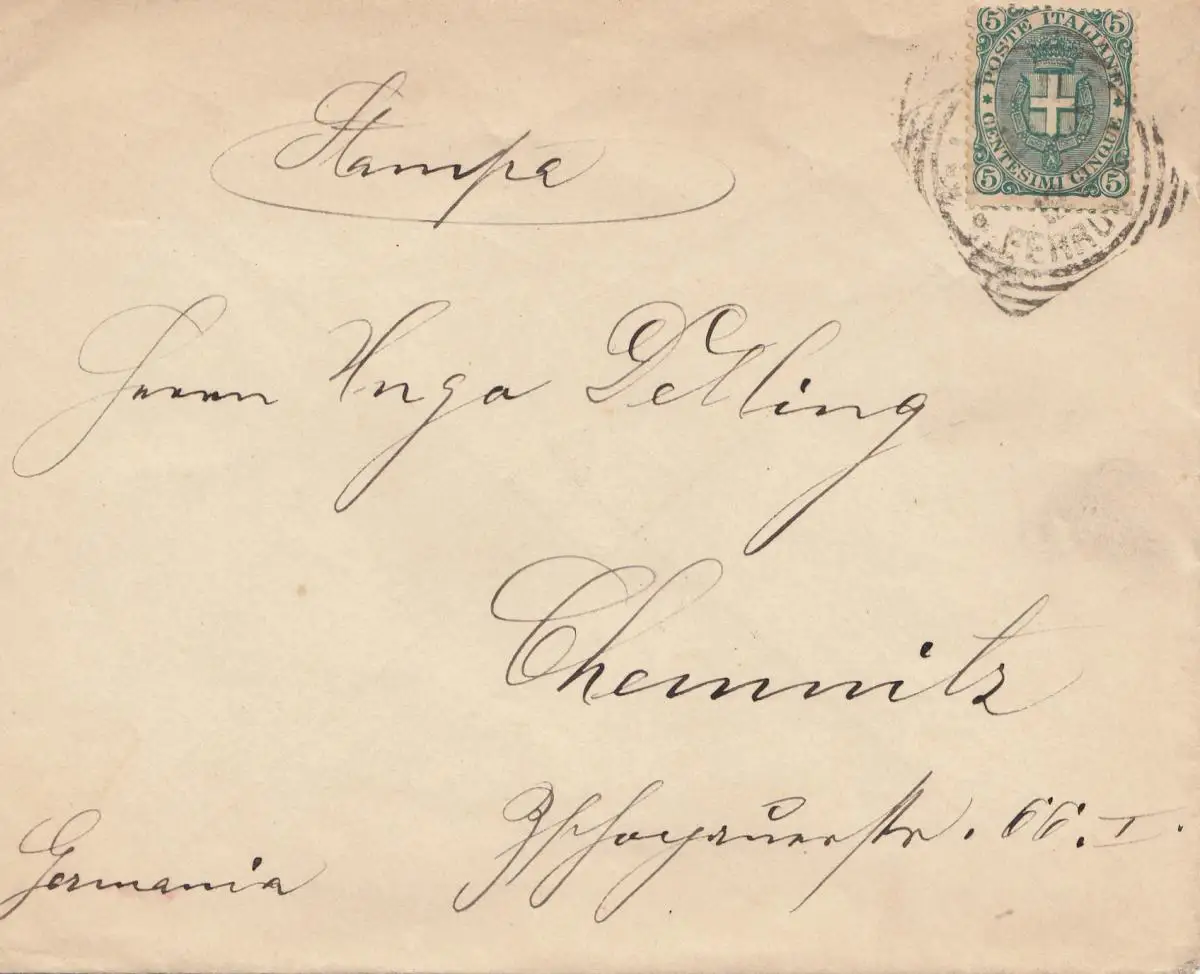 5 5
POSTE ITALIANE
CENTESIMI CINQUE
5 5
Stampa
Herrn Hugo Delling
Chemnitz
Zschopauerstr. 66. I.
Germania